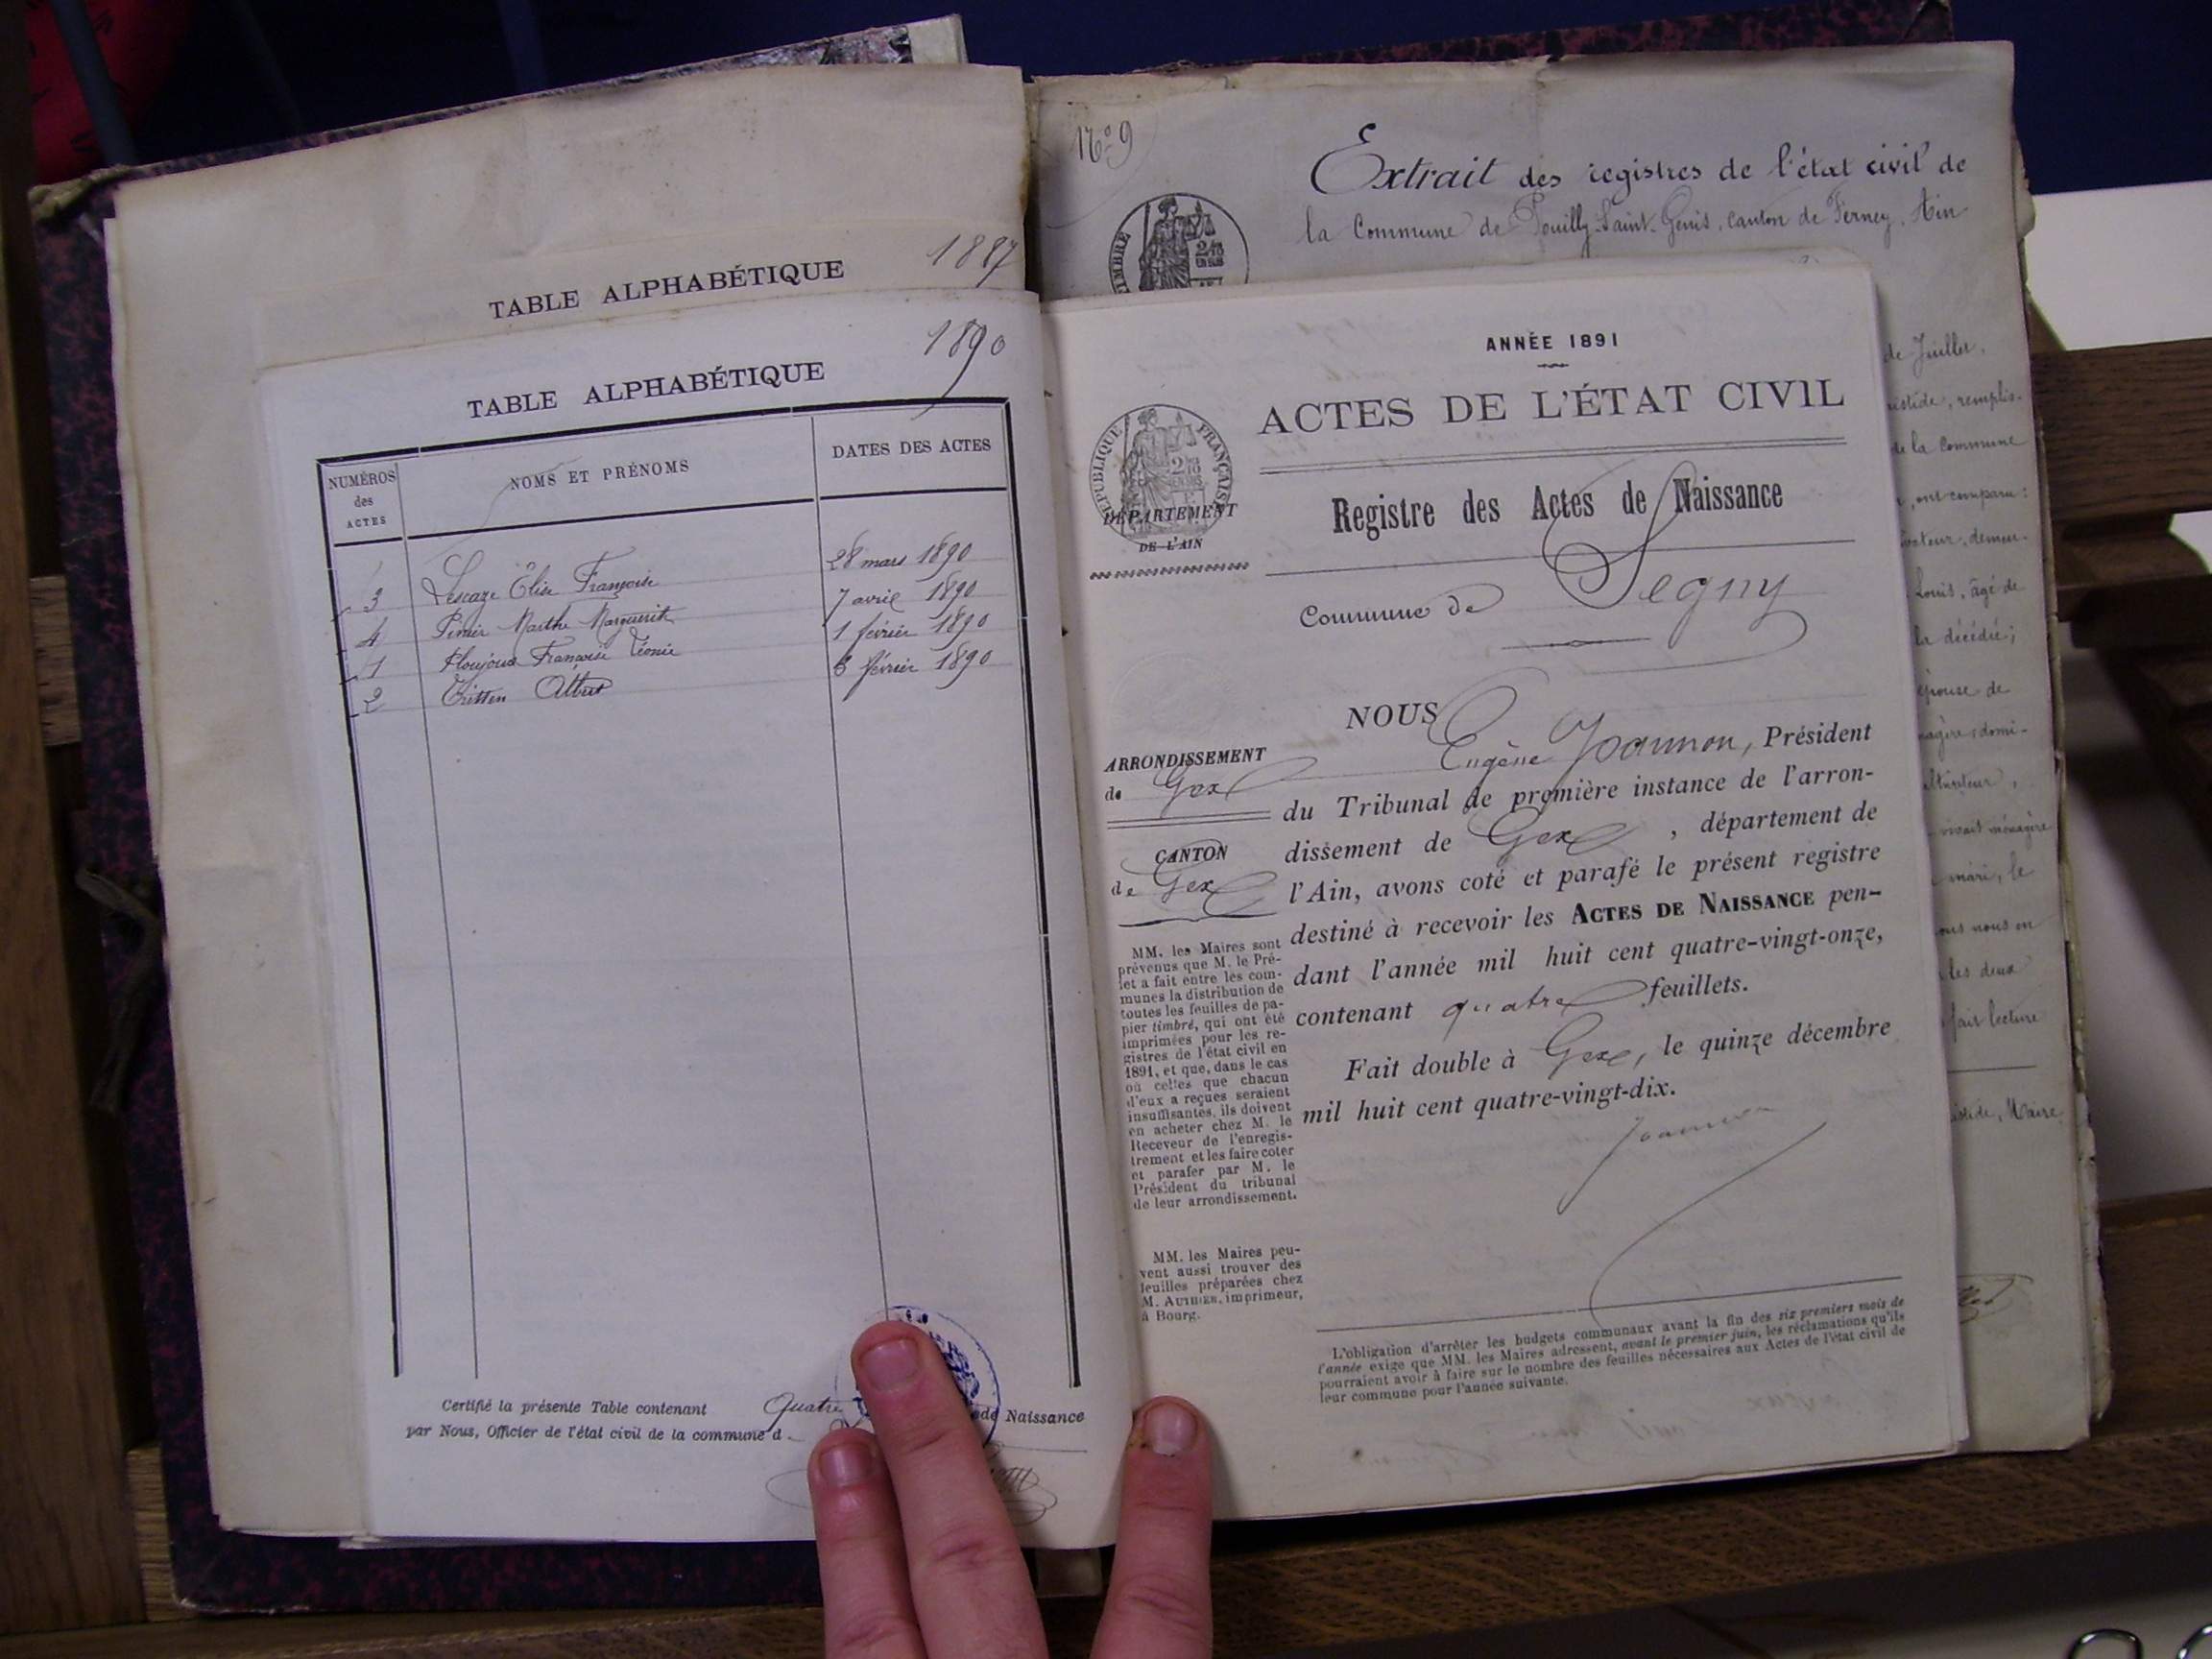 1887
TABLE ALPHABÉTIQUE
1890
TABLE ALPHABÉTIQUE
NUMÉROS
des
ACTES
NOMS ET PRÉNOMS
DATES DES ACTES
3 Lescaze Élise Françoise 28 mars 1890
4 Marthe Marguerite 7 avril 1890
1 Françoise Léonie 1 février 1890
2 Tritten Albert 6 février 1890
Certifié la présente Table contenant Quatre de Naissance
par Nous, Officier de l'état civil de la commune d
No 9
Extrait des registres de l'état civil de
la Commune de Pouilly-Saint-Genis, canton de Ferney, Ain
TIMBRE
ANNÉE 1891
ACTES DE L'ÉTAT CIVIL
RÉPUBLIQUE FRANÇAISE
DÉPARTEMENT
DE L'AIN
Registre des Actes de Naissance
Commune de Segny
ARRONDISSEMENT
de Gex
CANTON
de Gex
NOUS
Eugène Joannon, Président
du Tribunal de première instance de l'arron-
dissement de Gex, département de
l'Ain, avons coté et parafé le présent registre
destiné à recevoir les ACTES DE NAISSANCE pen-
dant l'année mil huit cent quatre-vingt-onze,
contenant quatre feuillets.
Fait double à Gex, le quinze décembre
mil huit cent quatre-vingt-dix.
Joannon
MM. les Maires sont
prévenus que M. le Pré-
fet a fait entre les com-
munes la distribution de
toutes les feuilles de pa-
pier timbré, qui ont été
imprimées pour les re-
gistres de l'état civil en
1891, et que, dans le cas
où celles que chacun
d'eux a reçues seraient
insuffisantes, ils doivent
en acheter chez M. le
Receveur de l'enregis-
trement et les faire coter
et parafer par M. le
Président du tribunal
de leur arrondissement.
MM. les Maires peu-
vent aussi trouver des
feuilles préparées chez
M. AUTHIER, imprimeur,
à Bourg.
L'obligation d'arrêter les budgets communaux avant la fin des six premiers mois de
l'année exige que MM. les Maires adressent, avant le premier juin, les réclamations qu'ils
pourraient avoir à faire sur le nombre des feuilles nécessaires aux Actes de l'état civil de
leur commune pour l'année suivante.
de Juillet,
istide, remplis-
de la commune
, ont comparu:
demeu-
Louis, âgé de
la décédée;
épouse de
domi-
vivait ménagère
mari, le
nous en
les deux
fait lecture
istide, Maire